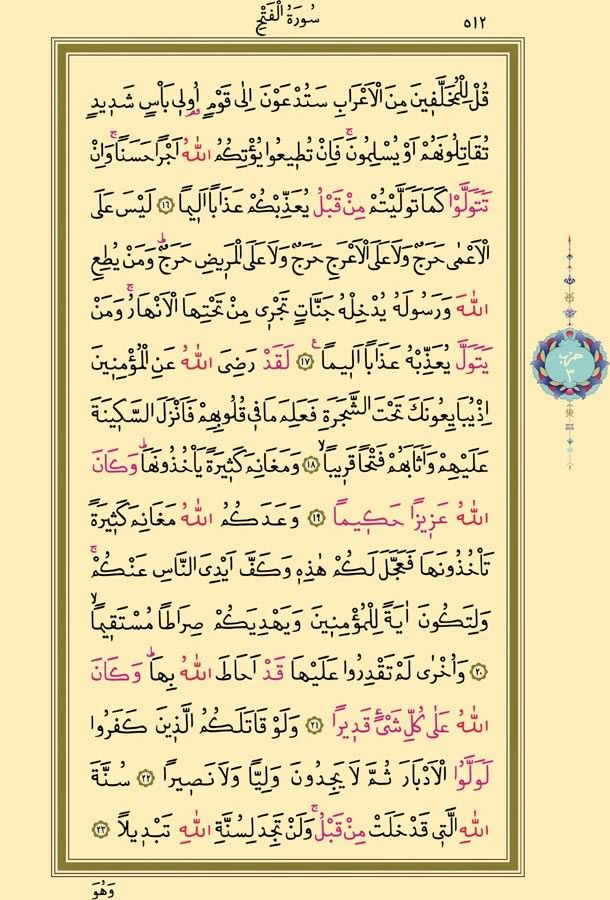 ٥١٢
سُورَةُ الْفَتْحِ
قُلْ لِلْمُخَلَّفٖينَ مِنَ الْاَعْرَابِ سَتُدْعَوْنَ اِلٰى قَوْمٍ اُولٖي بَأْسٍ شَدٖيدٍ
تُقَاتِلُونَهُمْ اَوْ يُسْلِمُونَۚ فَاِنْ تُطٖيعُوا يُؤْتِكُمُ اللّٰهُ اَجْرًا حَسَنًاۚ وَاِنْ
تَتَوَلَّوْا كَمَا تَوَلَّيْتُمْ مِنْ قَبْلُ يُعَذِّبْكُمْ عَذَابًا اَلٖيمًا ﴿١٦﴾ لَيْسَ عَلَى
الْاَعْمٰى حَرَجٌ وَلَا عَلَى الْاَعْرَجِ حَرَجٌ وَلَا عَلَى الْمَرٖيضِ حَرَجٌۜ وَمَنْ يُطِعِ
اللّٰهَ وَرَسُولَهُ يُدْخِلْهُ جَنَّاتٍ تَجْرٖي مِنْ تَحْتِهَا الْاَنْهَارُۚ وَمَنْ
يَتَوَلَّ يُعَذِّبْهُ عَذَابًا اَلٖيمًاࣖ ﴿١٧﴾ لَقَدْ رَضِيَ اللّٰهُ عَنِ الْمُؤْمِنٖينَ
اِذْ يُبَايِعُونَكَ تَحْتَ الشَّجَرَةِ فَعَلِمَ مَا فٖي قُلُوبِهِمْ فَاَنْزَلَ السَّكٖينَةَ
عَلَيْهِمْ وَاَثَابَهُمْ فَتْحًا قَرٖيبًاۙ ﴿١٨﴾ وَمَغَانِمَ كَثٖيرَةً يَأْخُذُونَهَاۜ وَكَانَ
اللّٰهُ عَزٖيزًا حَكٖيمًا ﴿١٩﴾ وَعَدَكُمُ اللّٰهُ مَغَانِمَ كَثٖيرَةً
تَأْخُذُونَهَا فَعَجَّلَ لَكُمْ هٰذِهٖ وَكَفَّ اَيْدِيَ النَّاسِ عَنْكُمْۚ
وَلِتَكُونَ اٰيَةً لِلْمُؤْمِنٖينَ وَيَهْدِيَكُمْ صِرَاطًا مُسْتَقٖيمًاۙ
﴿٢٠﴾ وَاُخْرٰى لَمْ تَقْدِرُوا عَلَيْهَا قَدْ اَحَاطَ اللّٰهُ بِهَاۜ وَكَانَ
اللّٰهُ عَلٰى كُلِّ شَيْءٍ قَدٖيرًا ﴿٢١﴾ وَلَوْ قَاتَلَكُمُ الَّذٖينَ كَفَرُوا
لَوَلَّوُا الْاَدْبَارَ ثُمَّ لَا يَجِدُونَ وَلِيًّا وَلَا نَصٖيرًا ﴿٢٢﴾ سُنَّةَ
اللّٰهِ الَّتٖي قَدْ خَلَتْ مِنْ قَبْلُۚ وَلَنْ تَجِدَ لِسُنَّةِ اللّٰهِ تَبْدٖيلًا ﴿٢٣﴾
وَهُوَ
حزب
٣